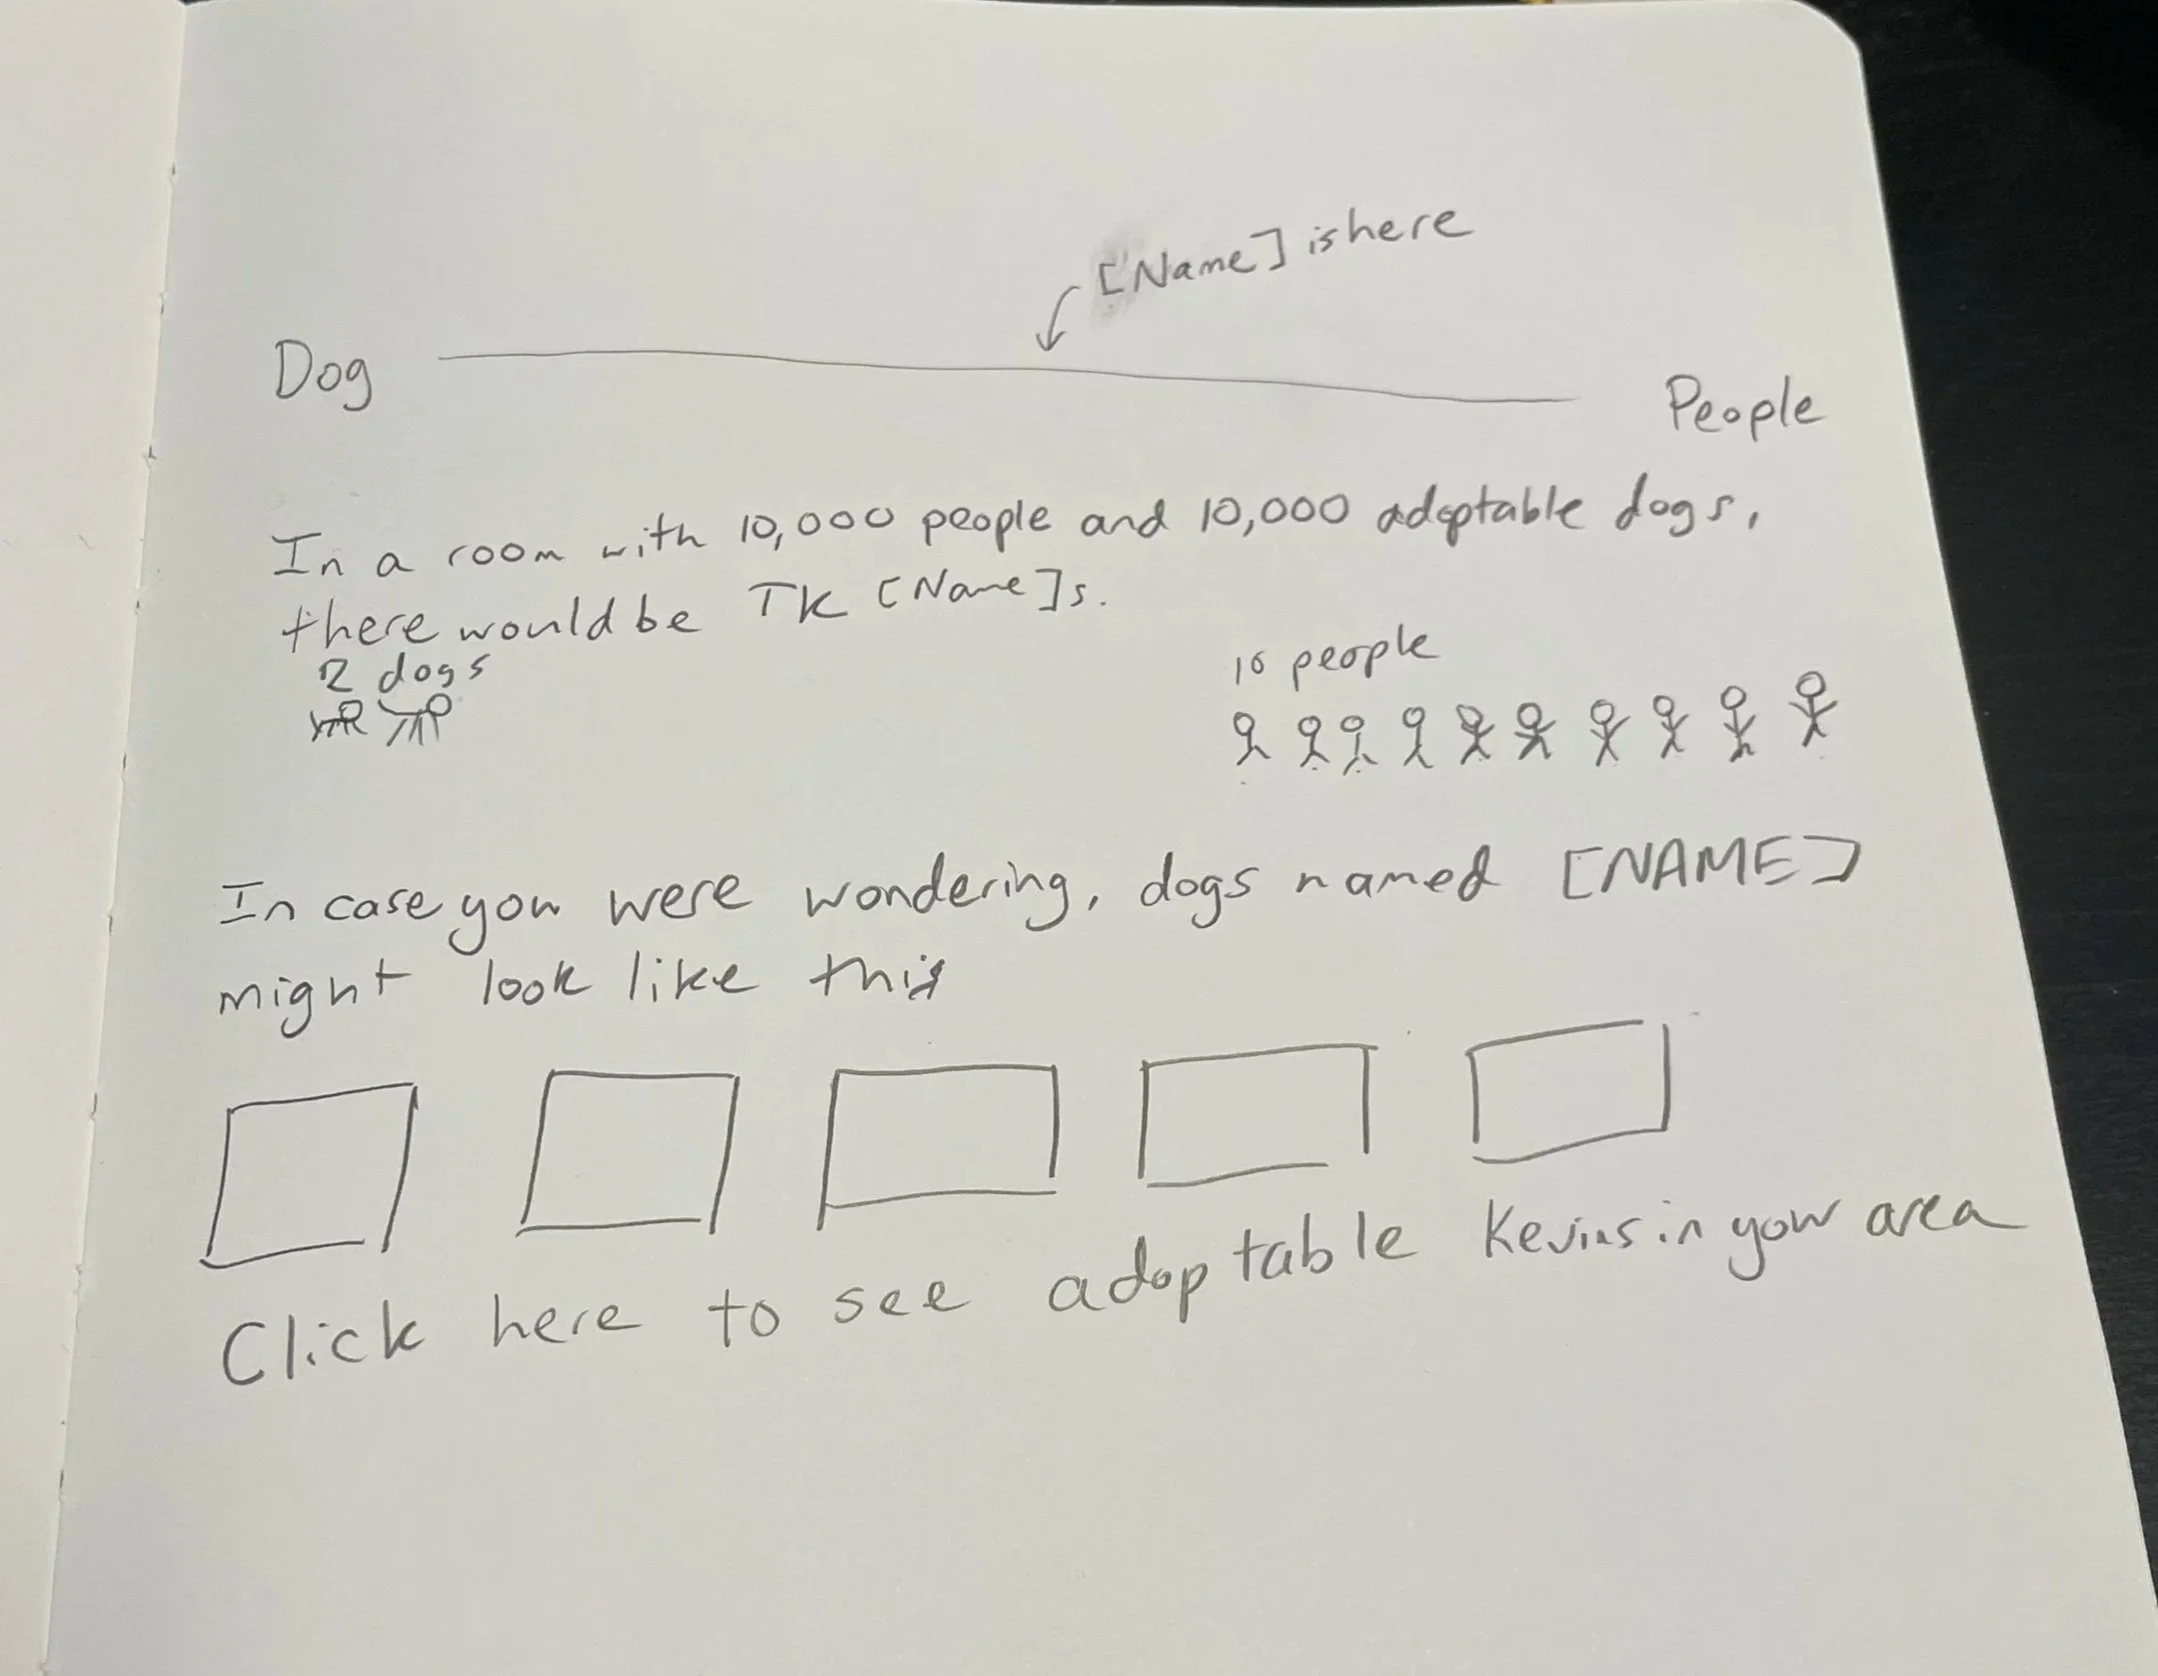 [Name] is here
Dog
People
In a room with 10,000 people and 10,000 adoptable dogs,
there would be TK [Name]s.
2 dogs
10 people
In case you were wondering, dogs named [NAME]
might look like this
Click here to see adoptable Kevins in your area